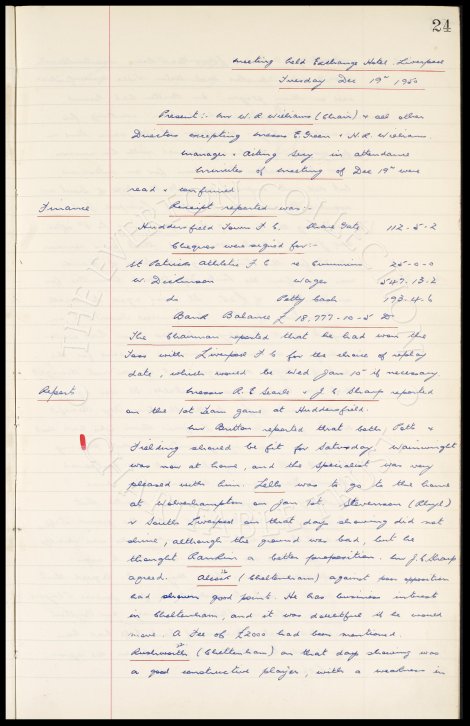 24
Meeting held Exchange Hotel, Liverpool
Tuesday Dec 19th 1950
Present:- Mr W. R. Williams (Chair) & all other
Directors excepting Messrs E. Green & H. R. Williams
Manager & Acting Secy in attendance
Minutes of meeting of Dec 19th were
read & confirmed
Finance
Receipt reported was:-
Huddersfield Town F.C. Share Gate 112-5-2
Cheques were signed for:-
St Patricks Athletic F.C. re Cummins 25-0-0
W. Dickinson Wages 547.13.2
do Petty Cash 193-4.6
Bank Balance £18,777-10-5 Dr
The Chairman reported that he had won the
Toss with Liverpool F.C. for the choice of replay
date, which would be Wed Jan 10th if necessary.
Reports
Messrs R. E. Searle & J. C. Sharp reported
on the 1st Team game at Huddersfield.
Mr Britton reported that both Potts &
Fielding should be fit for Saturday. Wainwright
was now at home, and the Specialist was very
pleased with him. Lello was to go to the home
at Wolverhampton on Jan 1st. Stevenson (Rhyl)
v South Liverpool on that days showing did not
shine, although the ground was bad, but he
thought Rankin a better proposition. Mr J. C. Sharp
agreed. (Cheltenham) against poor opposition
had shown good point. He has business interest
in Cheltenham, and it was doubtful if he would
move. A Fee of £2000 had been mentioned.
Rushworth (Cheltenham) on that days showing was
a good constructive player, with a weakness in
THE EVERTON COLLECTION